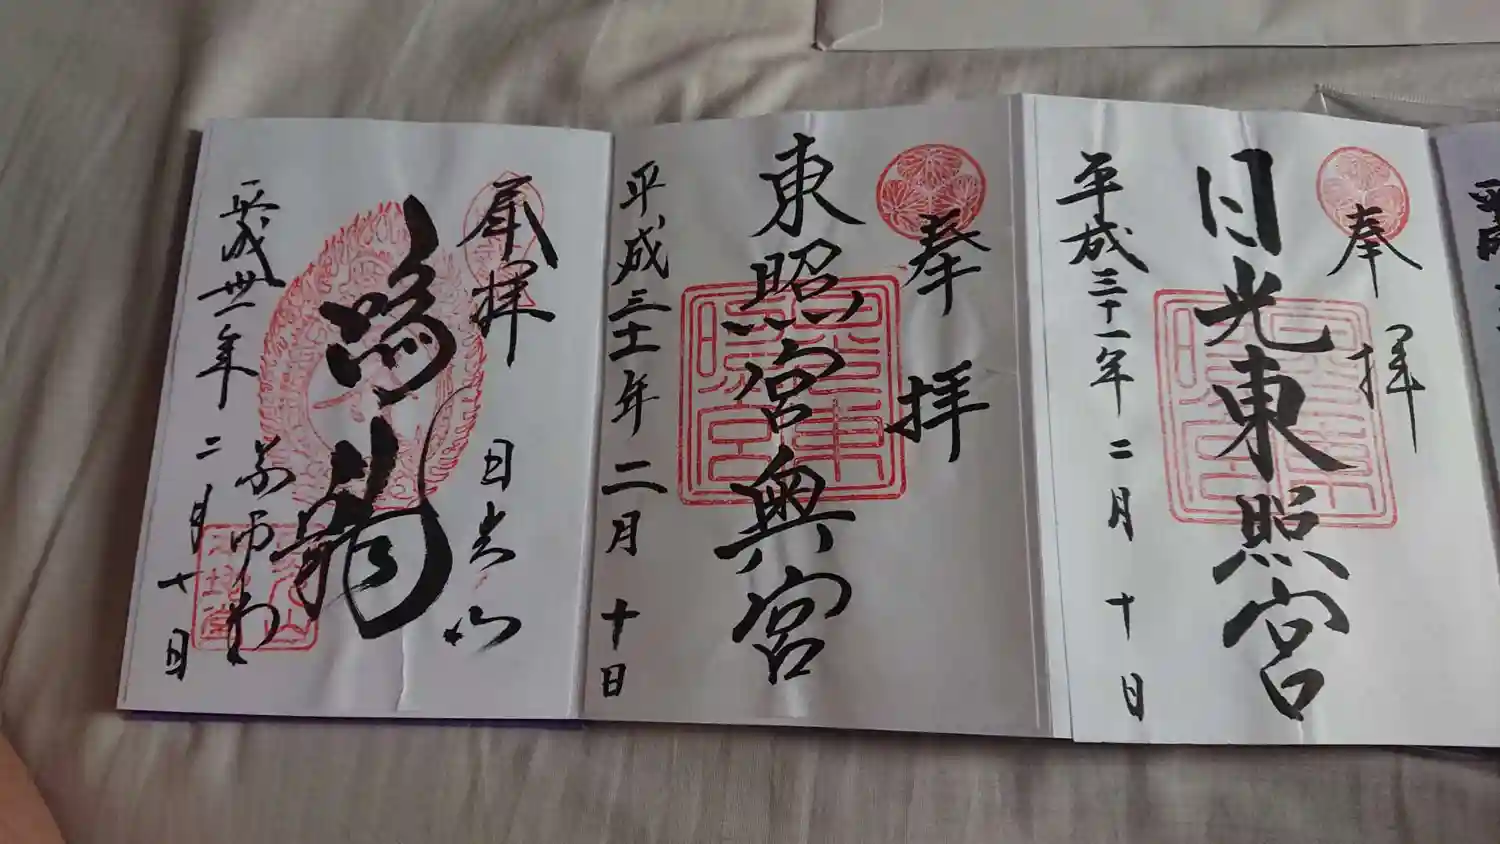 奉拝
日光東照宮
平成三十一年二月十日
奉拝
東照宮奥宮
平成三十一年二月十日
奉拝
日光山
鳴龍
薬師堂
平成卅一年二月十日